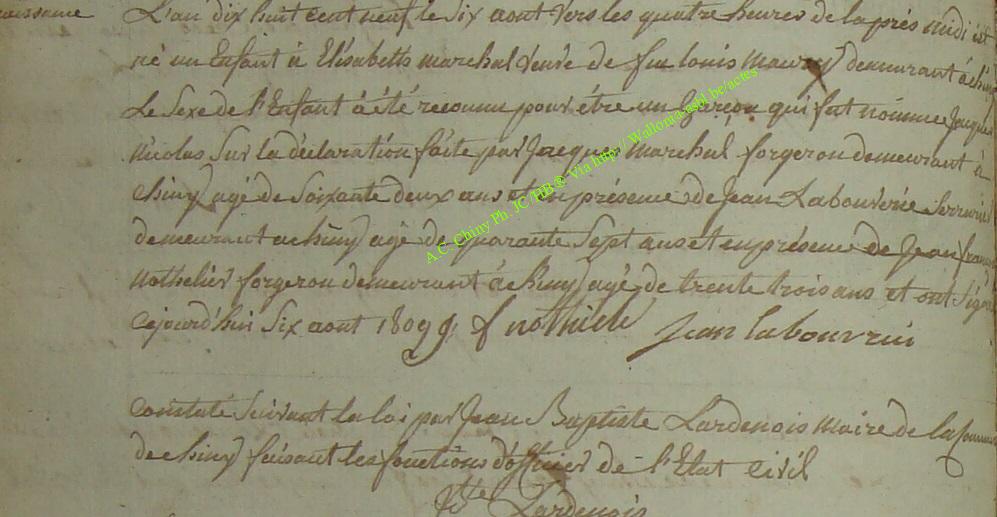 naissance
L'an dix huit cent neuf le six aont vers les quatre heures de la prés midi est
né un Enfant à Elisabeth marchal veuve de feu louis demeurant à chiny
Le Sexe de l'Enfant à été reconnu pour être un garçon qui fut nommé Jacques
Nicolas Sur la déclaration faite par Jacques Marchal forgeron demeurant à
chiny agé de Soixante deux ans et en présence de Jean Labouverie Serrurier
demeurant a chiny agé de quarante Sept ans et en présence de Jean françois
Nothelier forgeron demeurant à chiny agé de trente trois ans et ont Signé
cejourd'hui Six aont 1809
Jean labouverie
constaté Suivant la loi par Jean Baptiste Lardenois Maire de la Commune
de chiny faisant les fonctions d'officier de l'Etat Civil
Lardenois
A.C. Chiny Ph. JC/HB® Via http://Wallonia-asbl.be/actes